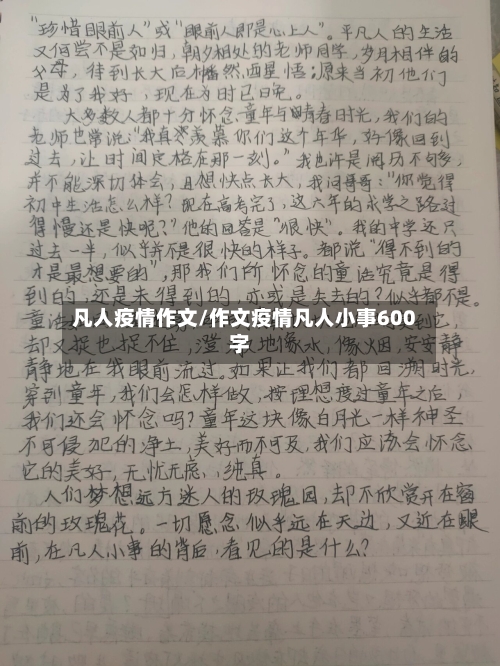 “珍惜眼前人”或“眼前人即是心上人”。平凡人的生活
又何尝不是如归，朝夕相处的老师同学，岁月相伴的
父母，待到长大后幡然醒悟：原来当初他们
是为了我好，现在为时已晚。
大多数人都十分怀念童年与青春时光，我们的
老师也常说：“我真羡慕你们这个年华，好像回到
过去，让时间定格在那一刻。”我也许是阅历不够多，
并不能深切体会，且想快点长大，我问哥哥：“你觉得
初中生活怎么样？现在高考完了，这六年的求学之路过
得慢还是快呢？”他的回答是“很快”。我的中学还只
过去一半，似乎并不是很快的样子。都说“得不到的
才是最想要的”，那我们所怀念的童话究竟是得
到的，还是未得到的，亦或是失去的？似乎都不是。
凡人疫情作文/作文疫情凡人小事600
字
却又捉也捉不住，澄澈地像水，像烟，安安静
静地在我眼前流过。如果让我们都回溯时光，
穿到童年，我们会怎样做，按理想度过童年之后，
我们还会怀念吗？童年这块像白月光一样神圣
不可侵犯的净土，美好而不可及，我们应该会怀念
它的美好，无忧无虑，纯真。
人们梦想远方迷人的玫瑰园，却不欣赏开在窗
前的玫瑰花。一切愿念似乎远在天边，又近在眼
前，在凡人小事的背后，看见的是什么？